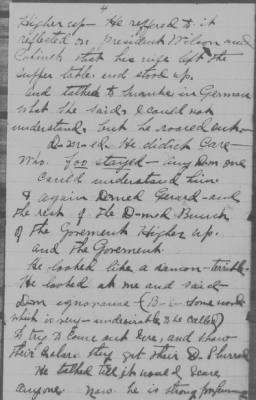 4
Higher up - He refered to it
reflected on President Wilson and
Cabinet, that his wife left the
supper table and stood up.
and talked to in German
what she said, I could not
understand, but he roared out -
D-m-ed. He didn't Care -
Who. Foo stayed - any Dm one
Could understand him
& again Dmed Gerard - and
the rest of the D-med Bunch
of the Goverment Higher up.
and the Goverment.
He looked like a - terrible.
He looked at me and said -
Dm ignorance - & B-s - some word
which is very - undesirable to be called
to try to Come out here, and show
their they get their D.
He talked till it would Scare
anyone. Now he is strong